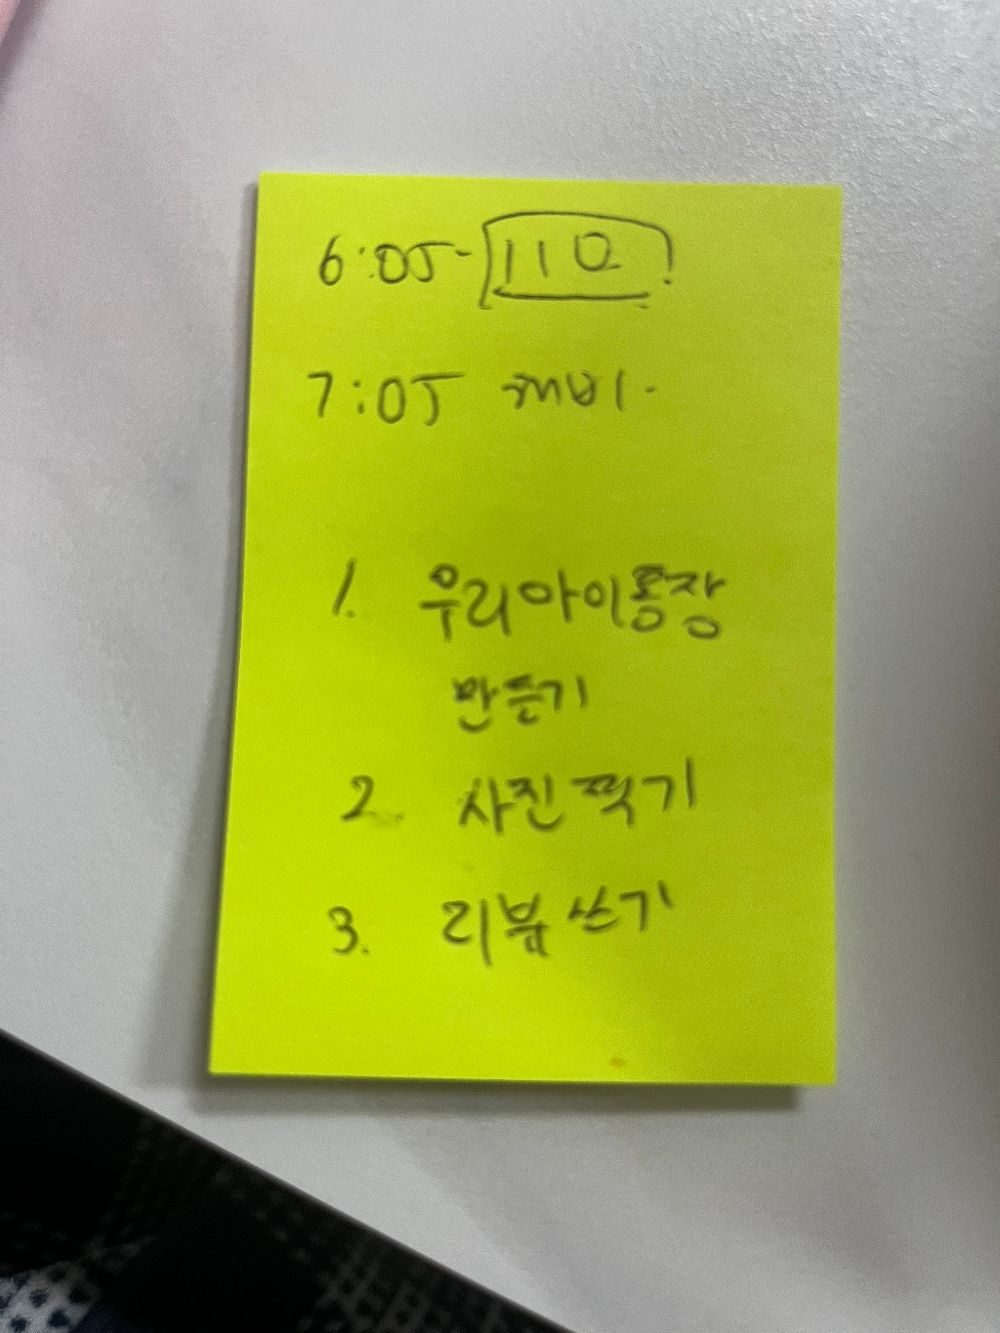 6:05- 110
7:05
1. 우리아이통장
만들기
2. 사진 찍기
3. 리뷰 쓰기